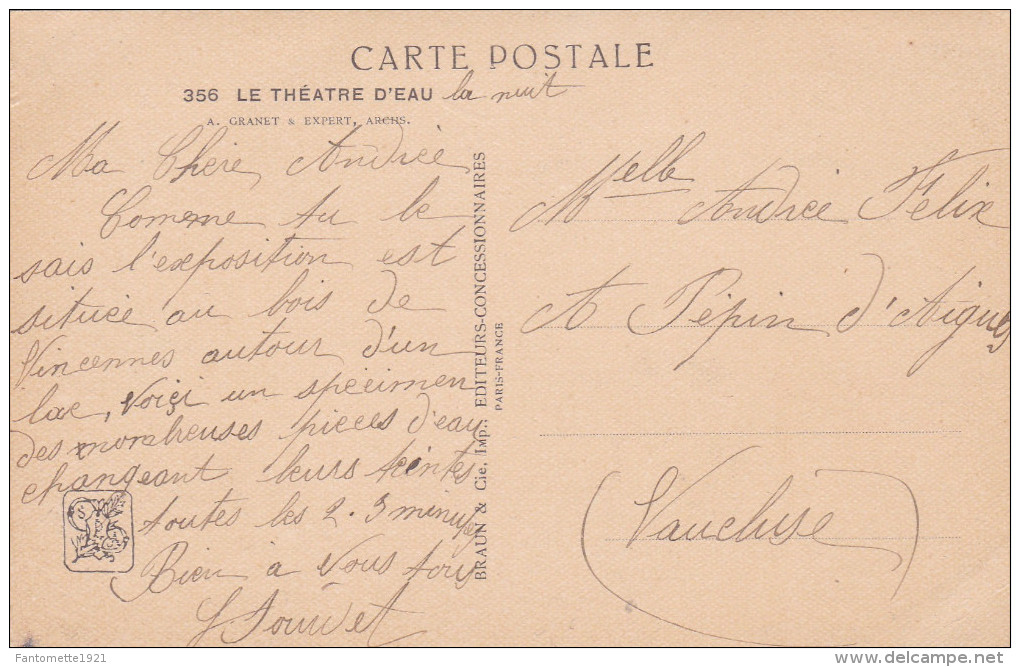 CARTE POSTALE
356 LE THÉATRE D'EAU la nuit
A. GRANET & EXPERT, ARCHS.
Ma Chère Andrée
Comme tu le
sais l'exposition est
située au bois de
Vincennes autour d'un
lac, voiçi un spécimen
des nombreuses pièces d'eau
changeant leurs teintes
toutes les 2.3 minutes
Bien à vous tous
BRAUN & Cie, Imp., EDITEURS-CONCESSIONNAIRES
PARIS-FRANCE
Melle Andrée Félix
A Pépin d'Aigues
Vaucluse
Fantomette1921
www.delcampe.net